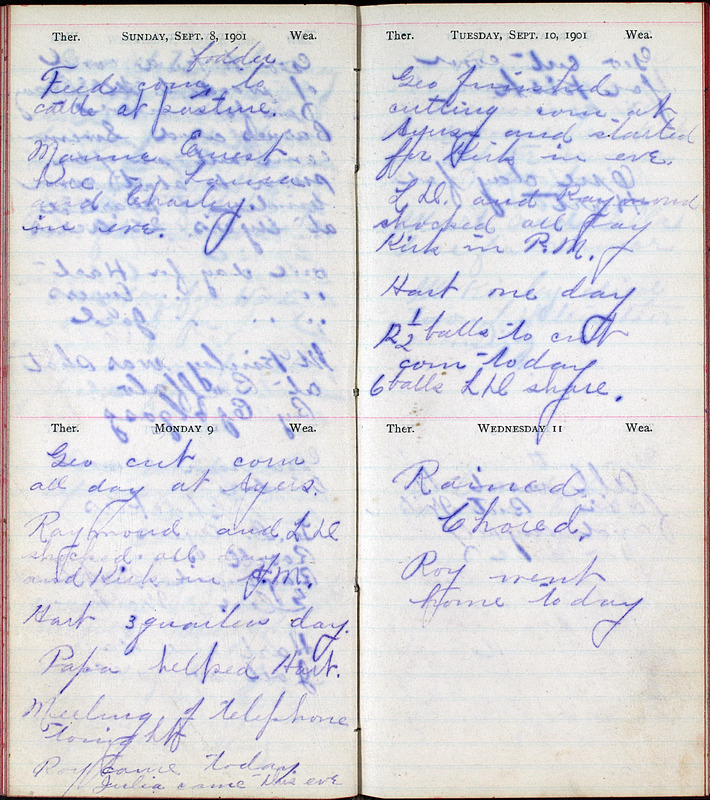 Ther. SUNDAY, SEPT. 8, 1901 Wea.
fodder
Feed corn to
cattle at pasture.
Mamie Ernest
Rue Louisa
and Charley.
in eve.
Ther. MONDAY 9 Wea.
Geo cut corn
all day at Ayers.
Raymond and L D
shocked all day
and Kirk in P.M.
Hart 3 quarters day.
Papa helped Hart.
Meeting of telephone
tonight
Roy came today
Julia came this eve
Ther. TUESDAY, SEPT. 10, 1901 Wea.
Geo finished
cutting corn at
Ayers and started
for Kirk in eve.
L D. and Raymond
shocked all day
Kirk in P.M.
Hart one day
12 1/2 balls to cut
corn today
6 balls L D share.
Ther. WEDNESDAY 11 Wea.
Rained
Chored.
Roy went
home today